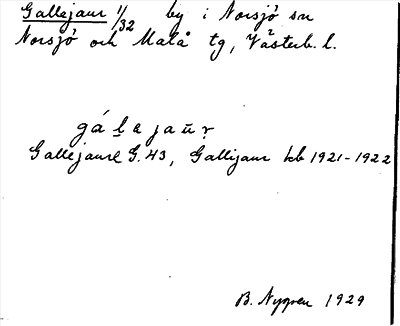 Gallejaur 1/32 by i Norsjö sn
Norsjö och Malå tg, Västerb. l.
gá l e ja ū r
Gallejaure G. 43, Gallijaur kb 1921-1922
B. Nygren 1929